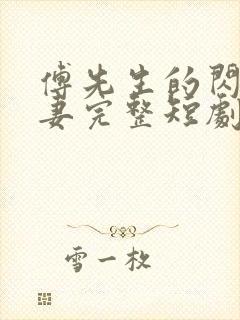 傅先生的閃
妻完整短劇
雪一枚